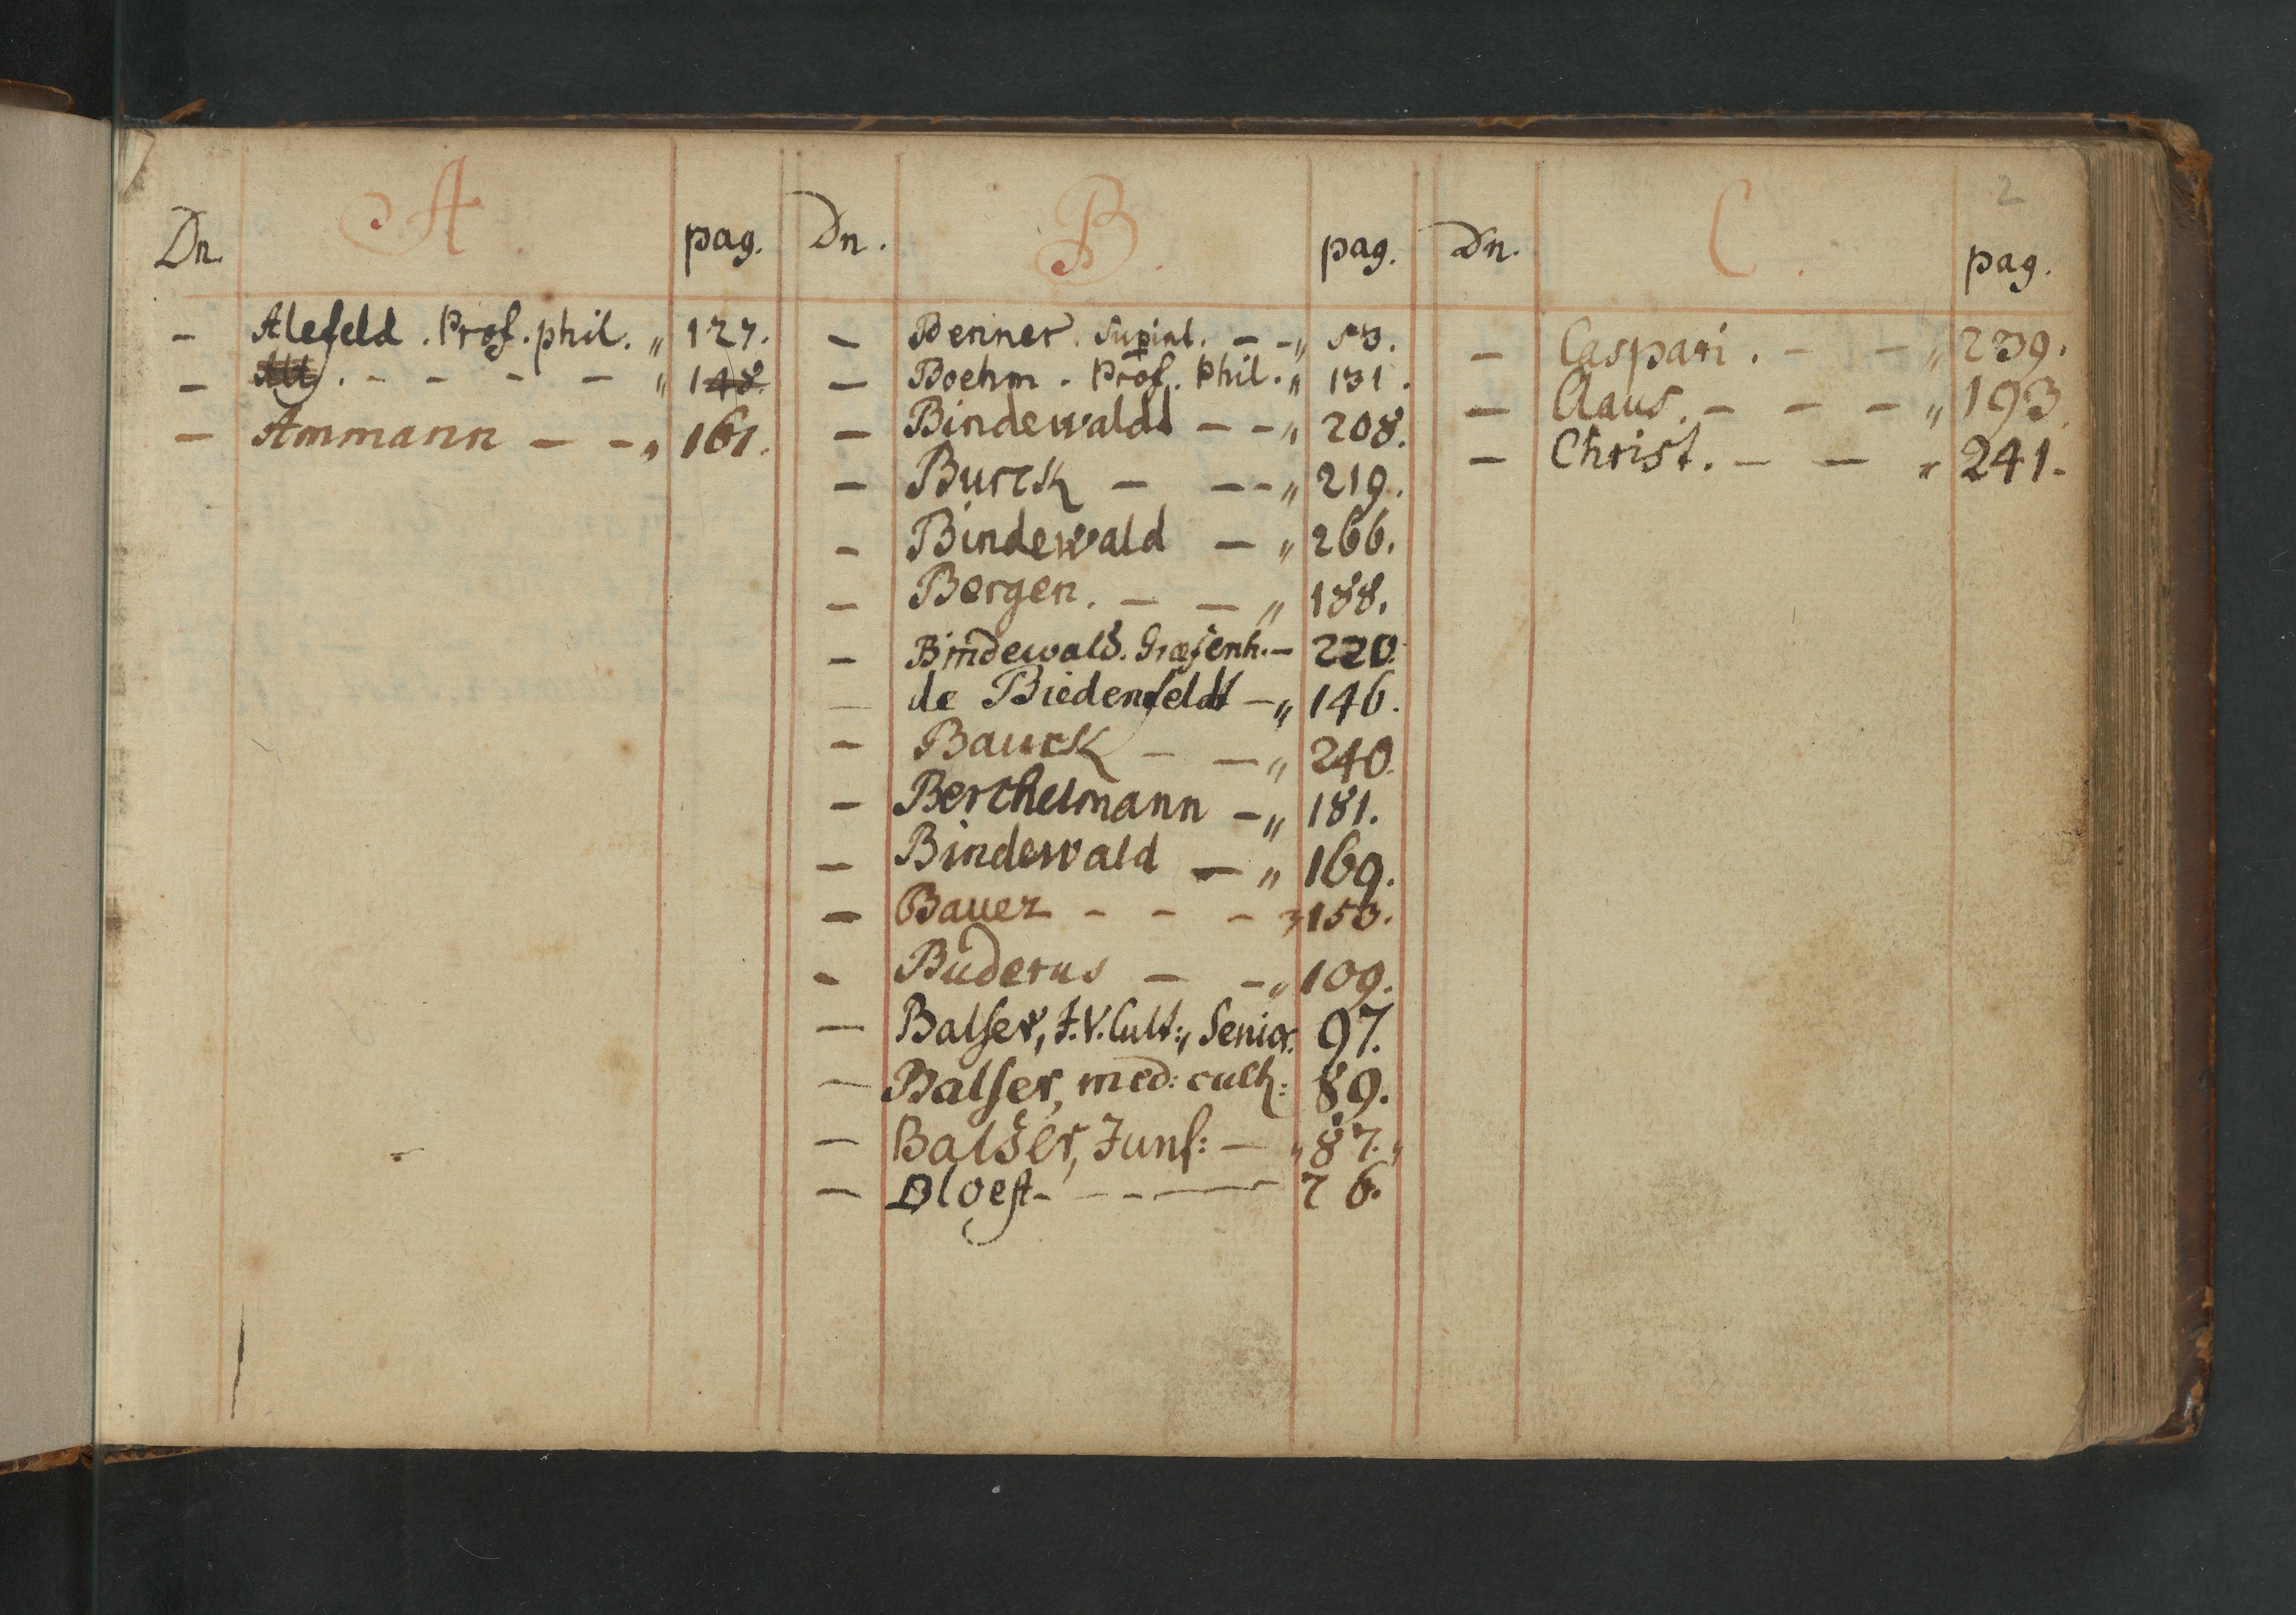 2
Dn. A. pag.
– Alefeld. Prof. phil. „ 127.
– Alt. – – – – „ 148.
– Ammann – – „ 161.
Dn. B. pag.
– Benner. Supint. – – „ 53.
– Boehm. Prof. Phil. „ 131.
– Bindewaldt – – „ 208.
– Burck – – – „ 219.
– Bindewald – „ 266.
– Bergen. – – „ 188.
– Bindewald. Græfenh. – 220.
– de Biedenfeldt – „ 146.
– Baurk – – „ 240.
– Berchelmann – „ 181.
– Bindewald – „ 169.
– Bauer – – – „ 153.
– Buderus – – „ 109.
– Balser, J. V. Cult:, Senior. 97.
– Balser, med: cult: 89.
– Balser, Junf: – „ 87. „
– Bloest – – – – 76.
Dn. C. pag.
– Caspari. – – „ 239.
– Claus. – – – „ 193.
– Christ. – – „ 241.